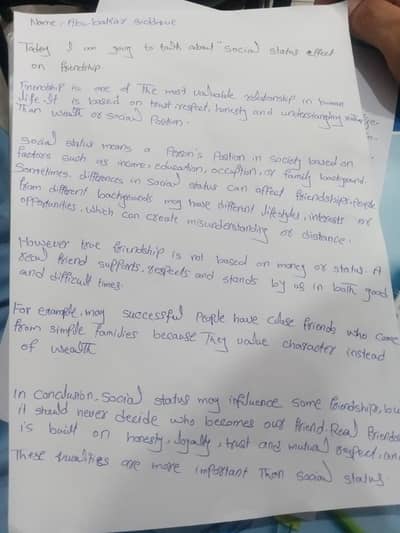 Name : Abu-bakkar siddique
Today I am going to talk about "social status effect
on friendship
Friendship is one of The most valuable relationship in human
life. It is based on trust, respect, honesty and understanding
Than wealth or social Position.
Social status means a Person's Position in society based on
factors such as income, education, occuption, or family background.
Sometimes, differences in social status can affect friendships. People
from different backgrounds may have different lifestyles, interests or
opportunities, which can create misunderstanding or distance.
However true friendship is not based on money or status. A
real friend supports, respects and stands by us in both good
and difficult times.
For example, may successful People have close friends who come
from simple families because They value character instead
of wealth
In Conclusion, Social status may influence some friendships,
it should never decide who becomes our friend. Real
is built on honesty, loyalty, trust and mutual respect,
These qualities are more important Than social status.